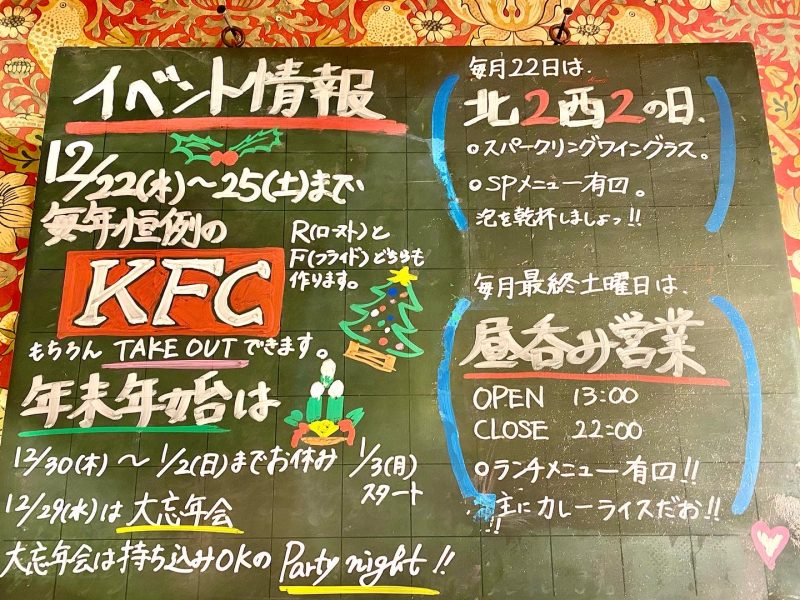 イベント情報
12/22(水)〜25(土)まで
毎年恒例の
KFC
R(ロースト)と
F(フライド)どちらも
作ります。
もちろん TAKE OUT できます。
年末年始は
12/30(木)〜1/2(日)までお休み 1/3(月)
スタート
12/29(水)は 大忘年会
大忘年会は持ち込みOKの Party night!!
毎月22日は、
北2西2の日、
○スパークリングワイングラス。
○SPメニュー有回。
泡を乾杯しましょっ!!
毎月最終土曜日は、
昼呑み営業
OPEN 13:00
CLOSE 22:00
○ランチメニュー有回!!
主にカレーライスだお!!
!!